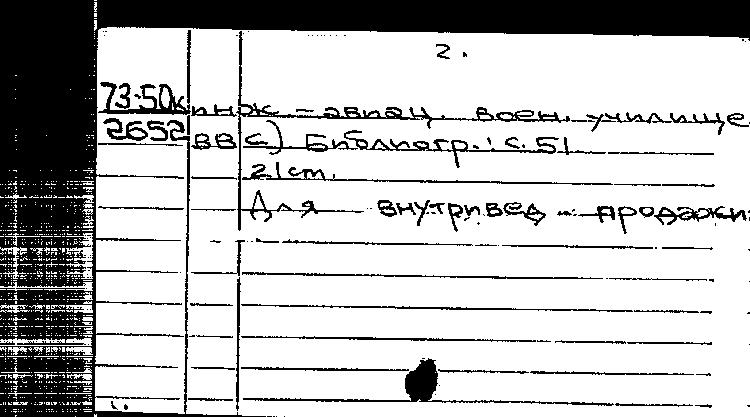 2.
73-50 кинж - авиац. воен. училище
2652 ВВС) Библиогр.: с. 51
21 cm.
Для внутривед - продажи